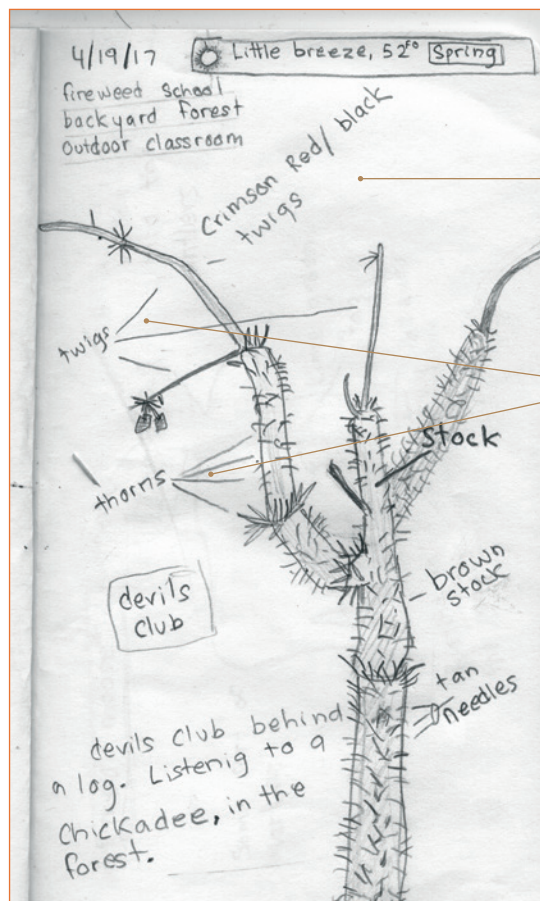 4/19/17
Little breeze, 52F° Spring
fireweed School
backyard forest
Outdoor classroom
Crimson Red/black
twigs
twigs
Stock
thorns
brown
stock
devils
club
tan
needles
devils club behind
a log. Listenig to a
Chickadee, in the
forest.